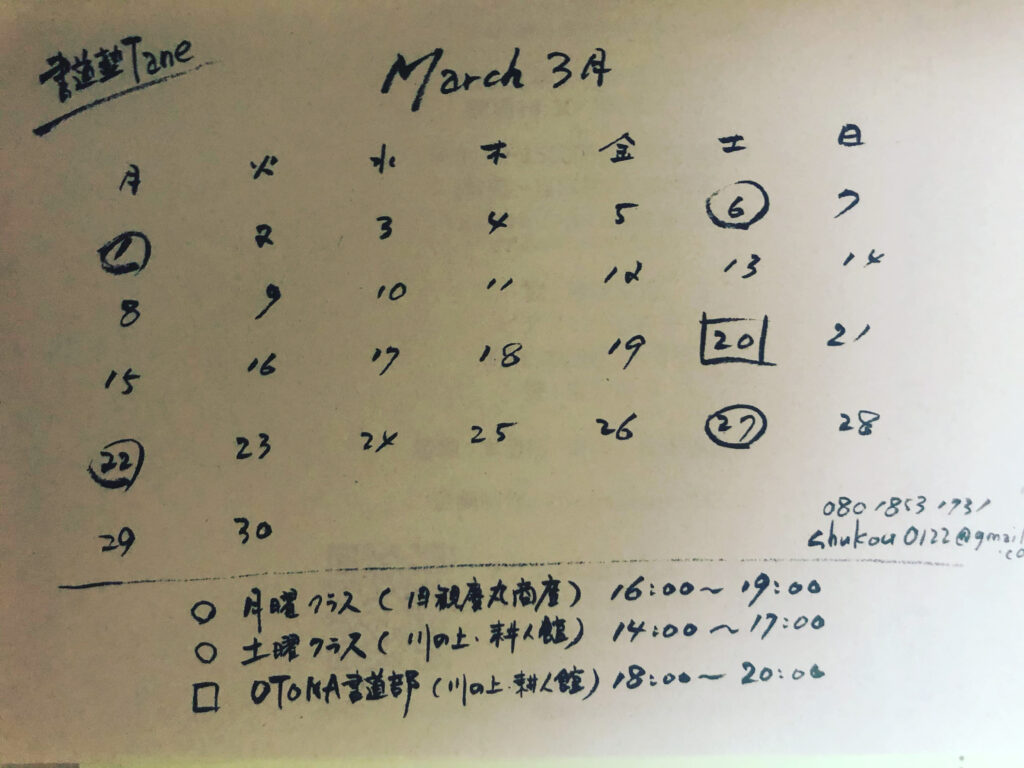 書道塾Tane
March 3月
月 火 水 木 金 土 日
1 2 3 4 5 6 7
8 9 10 11 12 13 14
15 16 17 18 19 20 21
22 23 24 25 26 27 28
29 30
080 1853 1731
shukou0122@gmail.co
○ 月曜クラス（旧観慶丸商店） 16:00～19:00
○ 土曜クラス（川の上・耕人館） 14:00～17:00
□ OTONA書道部（川の上・耕人館） 18:00～20:00